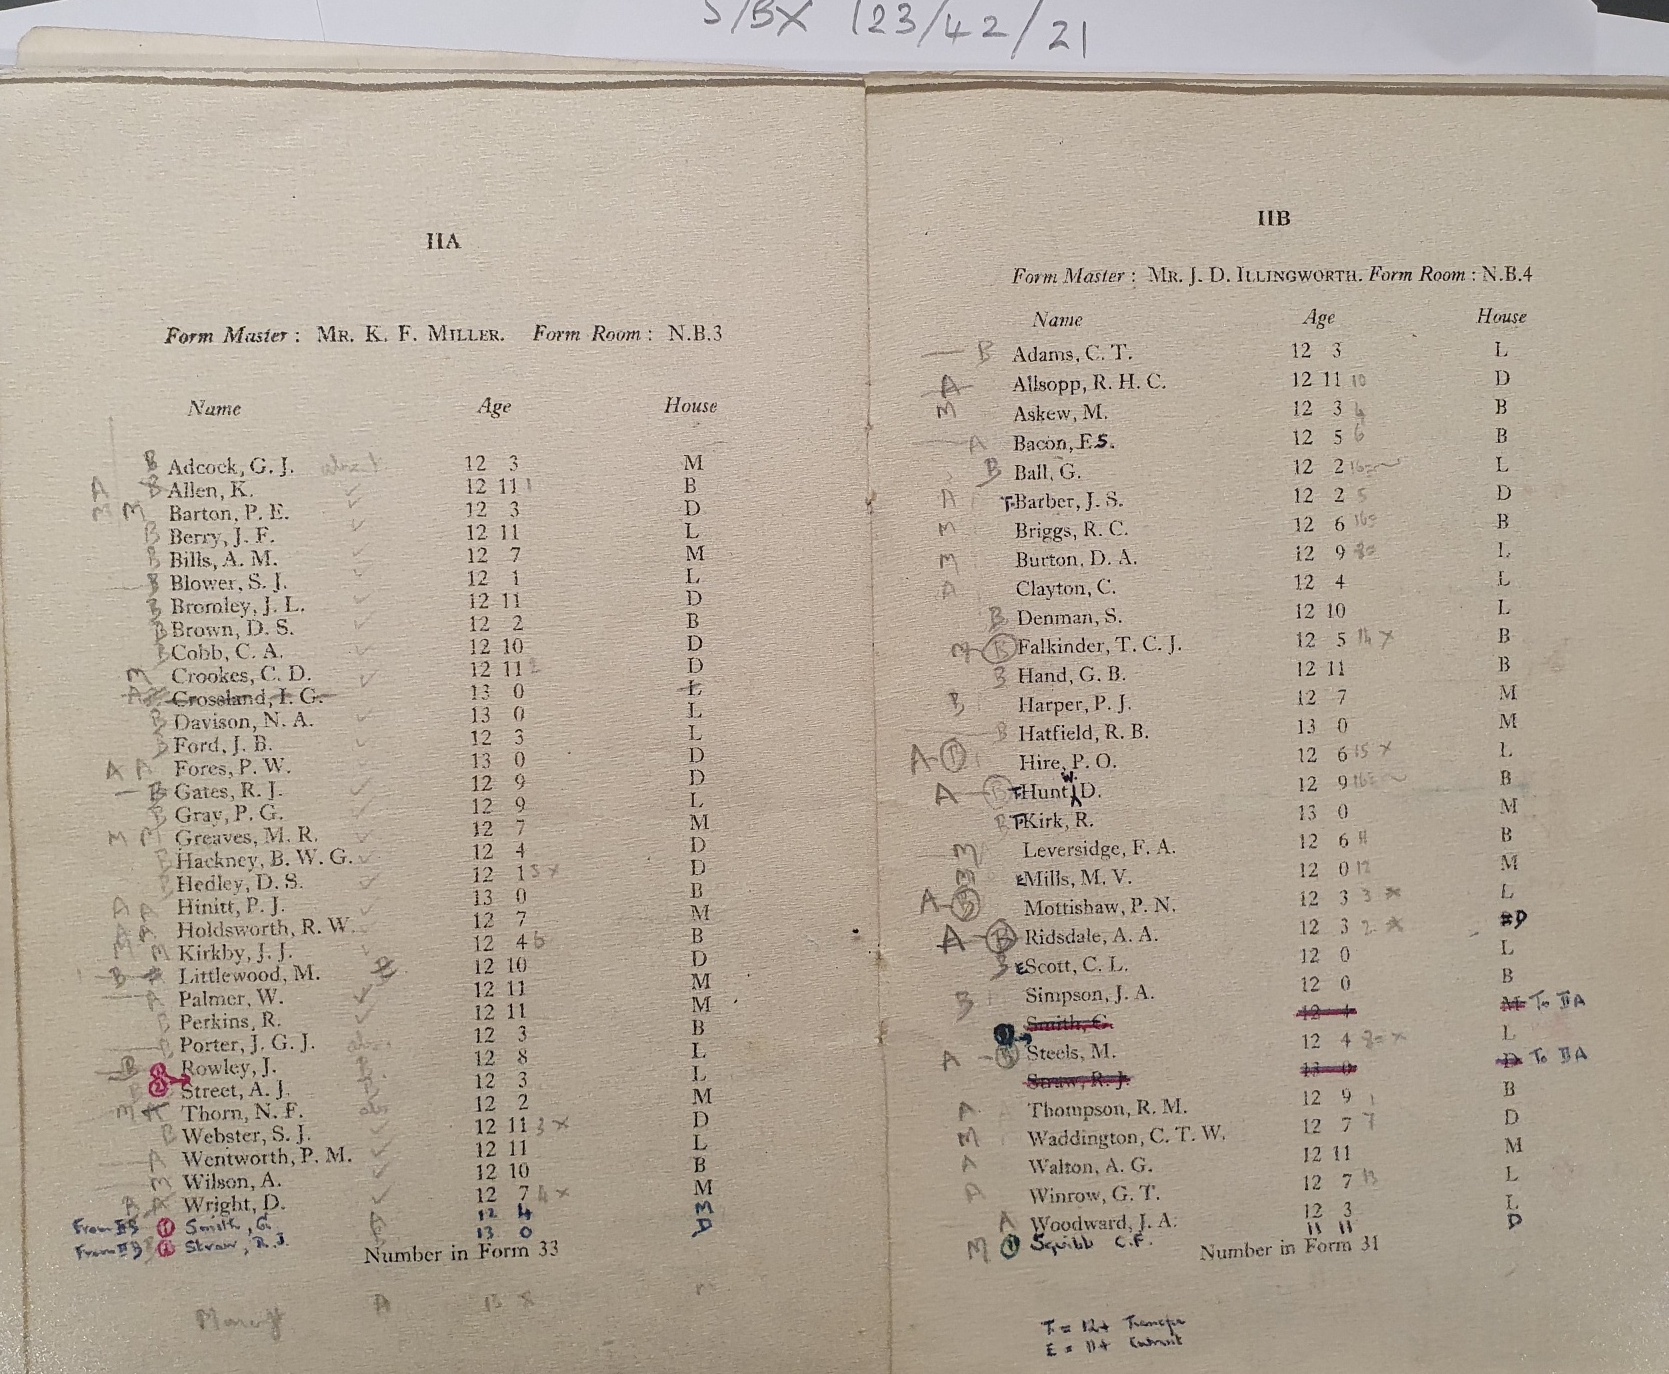 S/BX 123/42/21
IIA
Form Master : MR. K. F. MILLER. Form Room : N.B.3
Name Age House
B Adcock, G. J. 12 3 M
A B Allen, K. 12 11 1 B
M M Barton, P. E. 12 3 D
B Berry, J. F. 12 11 L
B Bills, A. M. 12 7 M
B Blower, S. J. 12 1 L
B Bromley, J. L. 12 11 D
B Brown, D. S. 12 2 B
B Cobb, C. A. 12 10 D
M Crookes, C. D. 12 11 2 D
Crossland, I. G. 13 0 L
B Davison, N. A. 13 0 L
B Ford, J. B. 12 3 L
A A Fores, P. W. 13 0 D
B Gates, R. J. 12 9 D
B Gray, P. G. 12 9 L
M M Greaves, M. R. 12 7 M
B Hackney, B. W. G. 12 4 D
B Hedley, D. S. 12 1 5 x D
A A Hinitt, P. J. 13 0 B
A A Holdsworth, R. W. 12 7 M
M M Kirkby, J. J. 12 4 6 B
B Littlewood, M. 12 10 D
A Palmer, W. 12 11 M
B Perkins, R. 12 11 M
B Porter, J. G. J. 12 3 B
B Rowley, J. 12 8 L
Street, A. J. 12 3 L
M A Thorn, N. F. 12 2 M
B Webster, S. J. 12 11 3 x D
A Wentworth, P. M. 12 11 L
M Wilson, A. 12 10 B
B A Wright, D. 12 7 4 x M
From IIB 1 Smith, G. 12 4 M
From IIB 2 Straw, R.J. 13 0 D
Number in Form 33
A 13 x
IIB
Form Master : MR. J. D. ILLINGWORTH. Form Room : N.B.4
Name Age House
B Adams, C. T. 12 3 L
A Allsopp, R. H. C. 12 11 10 D
M Askew, M. 12 3 4 B
A Bacon, E S. 12 5 6 B
B Ball, G. 12 2 L
A T Barber, J. S. 12 2 5 D
M Briggs, R. C. 12 6 B
M Burton, D. A. 12 9 8= L
A Clayton, C. 12 4 L
B Denman, S. 12 10 L
M B Falkinder, T. C. J. 12 5 14 x B
B Hand, G. B. 12 11 B
B Harper, P. J. 12 7 M
B Hatfield, R. B. 13 0 M
A B Hire, P. O. 12 6 15 x L
A B T Hunt, W. D. 12 9 B
B T Kirk, R. 13 0 M
M Leversidge, F. A. 12 6 11 B
E Mills, M. V. 12 0 12 M
A B Mottishaw, P. N. 12 3 3 x L
A B Ridsdale, A. A. 12 3 2 x D
B E Scott, C. L. 12 0 L
B Simpson, J. A. 12 0 B
Smith, G. 12 4 M To IIA
A B Steels, M. 12 4 8= x L
Straw, R. J. 13 0 D To IIA
A Thompson, R. M. 12 9 1 B
M Waddington, C. T. W. 12 7 7 D
A Walton, A. G. 12 11 M
A Winrow, G. T. 12 7 13 L
A Woodward, J. A. 12 3 L
M 1 Squibb C.F. 11 11 D
Number in Form 31
T = 12+ Transfer
E = 11+ Entrant